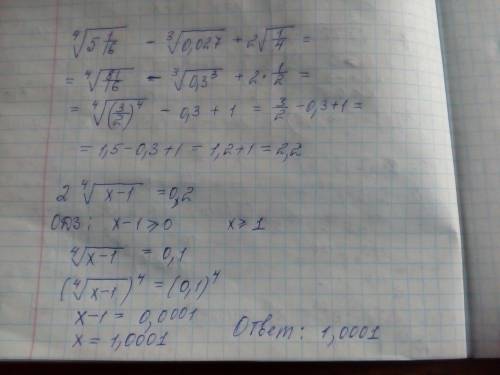 ⁴√(5 1/16) - ³√(0,027) + 2√(1/4) =
= ⁴√(81/16) - ³√(0,3³) + 2·1/2 =
= ⁴√((3/2)⁴) - 0,3 + 1 = 3/2 - 0,3 + 1 =
= 1,5 - 0,3 + 1 = 1,2 + 1 = 2,2
2 ⁴√(x-1) = 0,2
ОДЗ: x-1 ⩾ 0 x ⩾ 1
⁴√(x-1) = 0,1
(⁴√(x-1))⁴ = (0,1)⁴
x-1 = 0,0001
x = 1,0001 Ответ: 1,0001